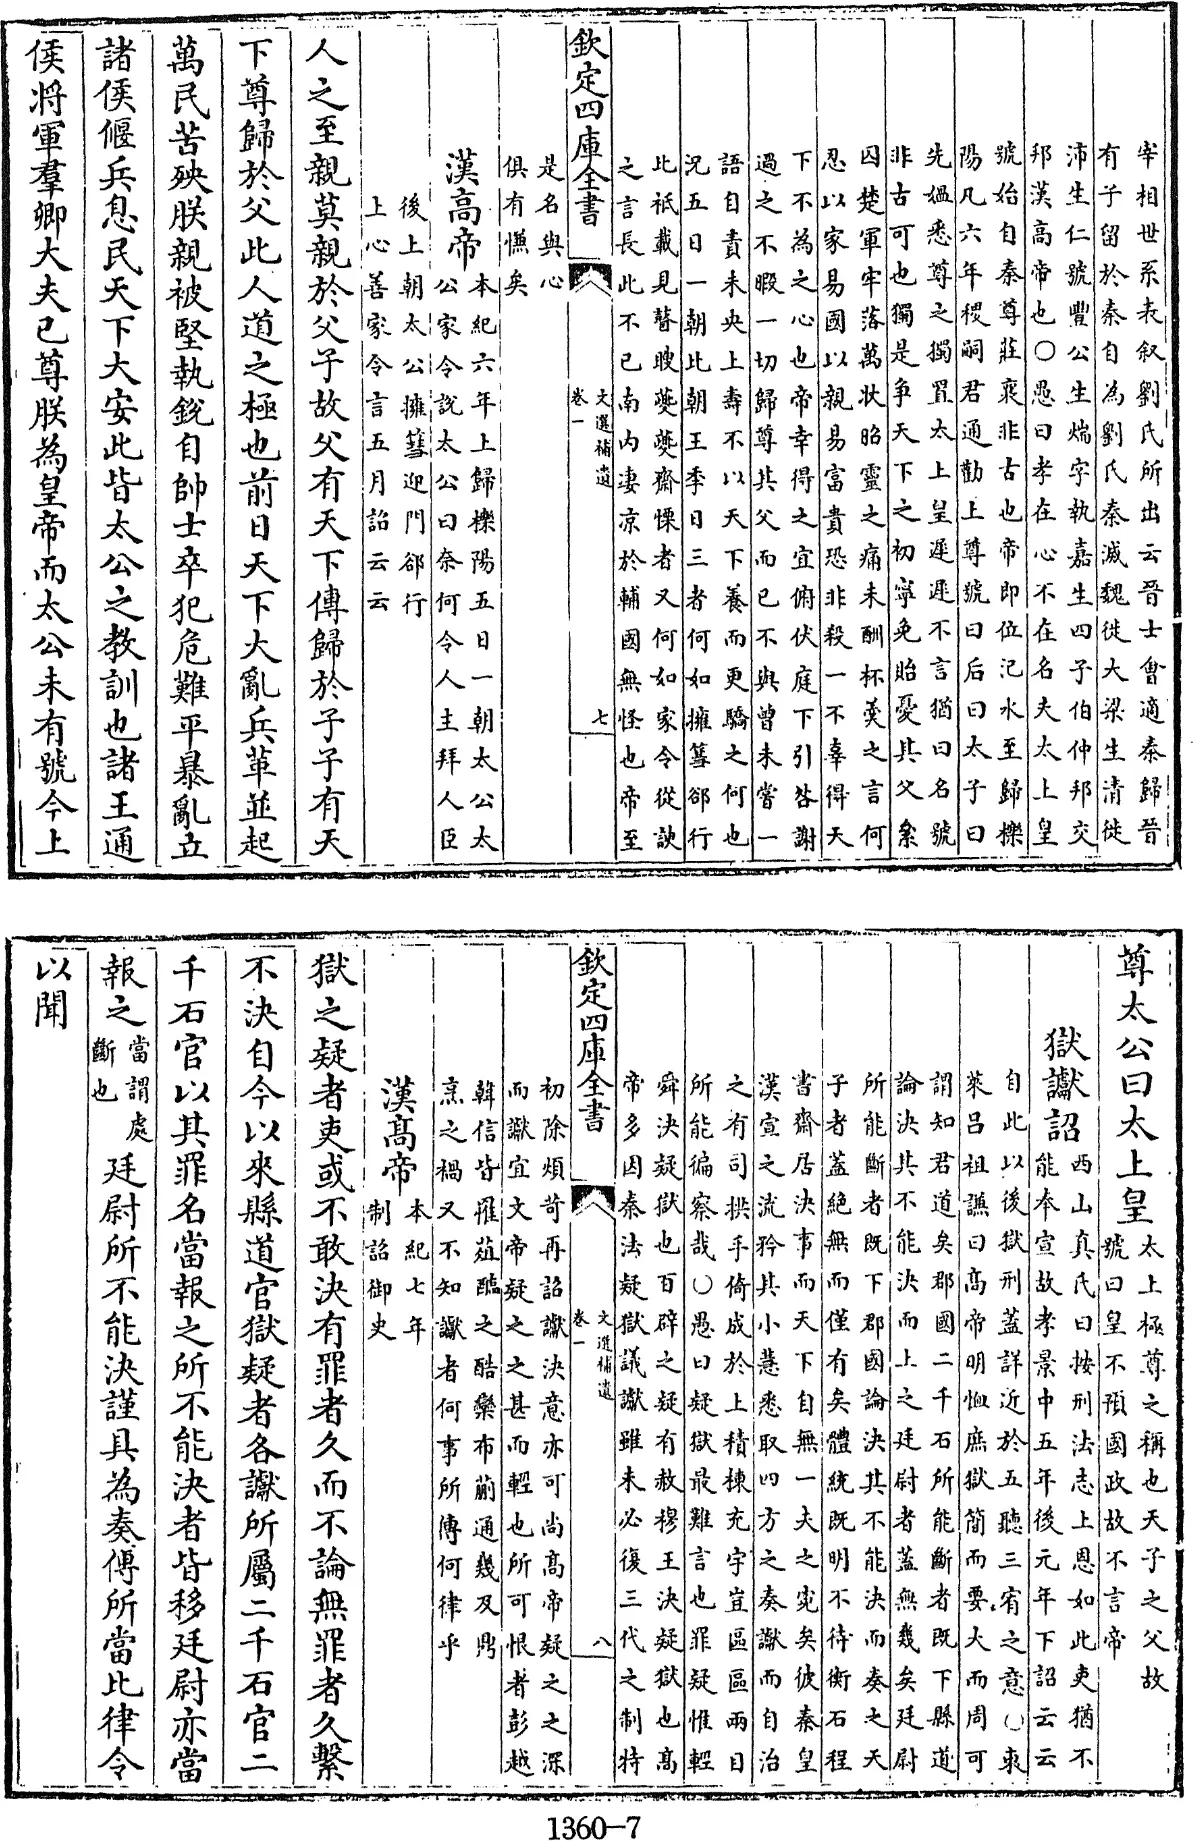 宰相世系表叙劉氏所出云晉士會適秦歸晉
有子留於秦自為劉氏秦滅魏徙大梁生清徙
沛生仁號豐公生煓字執嘉生四子伯仲邦交
邦漢高帝也○愚曰孝在心不在名夫太上皇
號始自秦尊莊襄非古也帝即位汜水至歸櫟
陽凡六年稷嗣君通勸上尊號曰后曰太子曰
先媼悉尊之獨置太上皇遲遲不言猶曰名號
非古可也獨是爭天下之初寧免貽憂其父絫
囚楚軍牢落萬狀昭靈之痛未酬杯羮之言何
忍以家易國以親易富貴恐非殺一不辜得天
下不為之心也帝幸得之宜俯伏庭下引咎謝
過之不暇一切歸尊其父而已不與曾未嘗一
語自責未央上壽不以天下養而更驕之何也
况五日一朝比朝王季日三者何如擁篲郤行
此祇載見瞽瞍夔夔齋慄者又何如家令從諛
之言長此不已南内凄凉於輔國無怪也帝至
欽定四庫全書
文選補遺
卷一
七
是名與心
俱有慊矣
漢高帝
本紀六年上歸櫟陽五日一朝太公太
公家令說太公曰奈何令人主拜人臣
後上朝太公擁篲迎門郤行
上心善家令言五月詔云云
人之至親莫親於父子故父有天下傳歸於子子有天
下尊歸於父此人道之極也前日天下大亂兵革並起
萬民苦殃朕親被堅執銳自帥士卒犯危難平暴亂立
諸侯偃兵息民天下大安此皆太公之教訓也諸王通
侯將軍羣卿大夫已尊朕為皇帝而太公未有號今上
尊太公曰太上皇
太上極尊之稱也天子之父故
號曰皇不預國政故不言帝
獄讞詔
西山真氏曰按刑法志上恩如此吏猶不
能奉宣故孝景中五年後元年下詔云云
自此以後獄刑蓋詳近於五聽三宥之意○東
萊呂祖謙曰高帝明恤庶獄簡而要大而周可
謂知君道矣郡國二千石所能斷者既下縣道
論決其不能決而上之廷尉者蓋無幾矣廷尉
所能斷者既下郡國論決其不能決而奏之天
子者蓋絕無而僅有矣體統既明不待衡石程
書齋居決事而天下自無一夫之寃矣彼秦皇
漢宣之流矜其小慧悉取四方之奏讞而自治
之有司拱手倚成於上積棟充宇豈區區兩日
所能徧察哉○愚曰疑獄最難言也罪疑惟輕
舜決疑獄也百辟之疑有赦穆王決疑獄也高
帝多因秦法疑獄議讞雖未必復三代之制特
欽定四庫全書
文選補遺
卷一
八
初除煩苛再詔讞決意亦可尚高帝疑之之深
而讞宜文帝疑之之甚而輕也所可恨者彭越
韓信皆罹葅醢之酷欒布蒯通幾及鼎
烹之禍又不知讞者何事所傳何律乎
漢髙帝
本紀七年
制詔御史
獄之疑者吏或不敢決有罪者久而不論無罪者久繫
不決自今以來縣道官獄疑者各讞所屬二千石官二
千石官以其罪名當報之所不能決者皆移廷尉亦當
報之
當謂處
斷也
廷尉所不能決謹具為奏傅所當比律令
以聞
1360-7